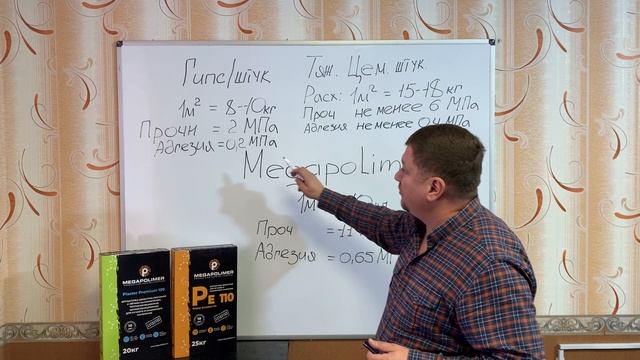 Гипс/штук
1м² = 8-10кг
Прочн = 2 МПа
Адгезия = 0,2 МПа
Тяж. Цем. штук
Расх: 1м² = 15-18 кг
Проч не менее 6 МПа
Адгезия не менее 0,4 МПа
Megapolim
1м
Проч = 11
Адгезия = 0,65 М
MEGAPOLIMER
Plaster Premium 100
20кг
MEGAPOLIMER
PE 110
25кг